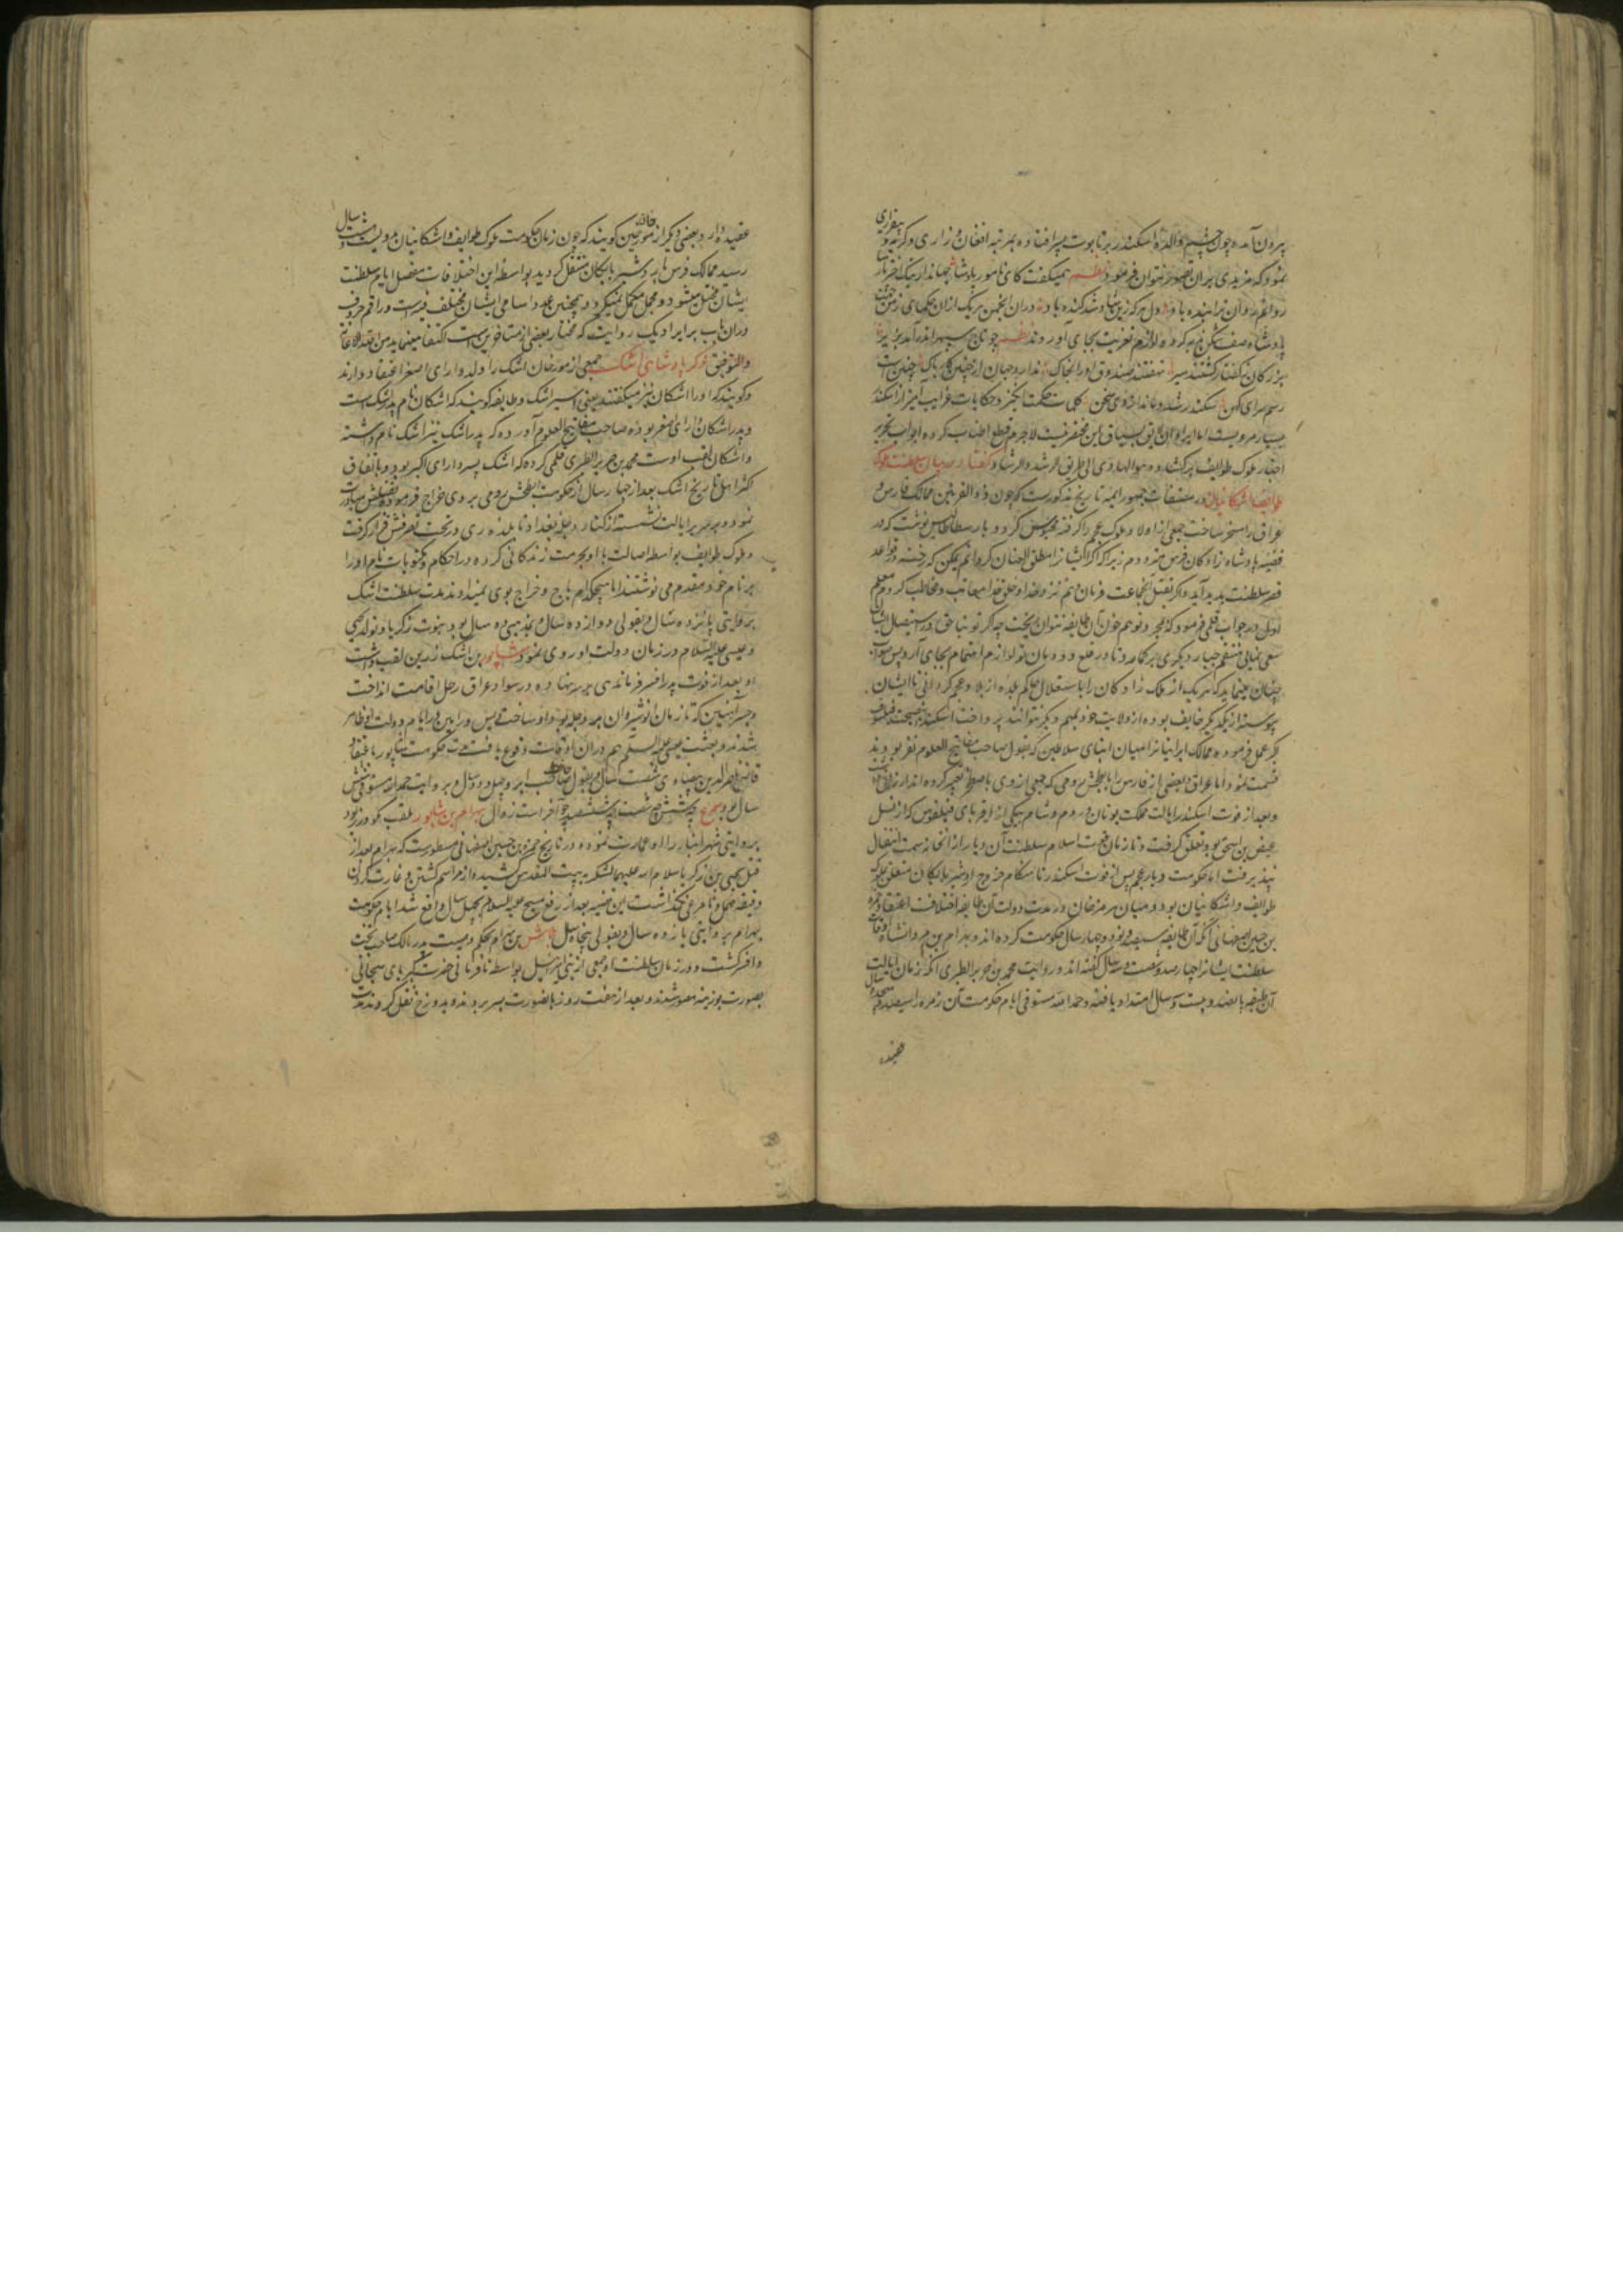 بیرون آمده چون چشم والده اسکندر بر تابوت پسر افتاده بمرتبه افغان و زاری و گریه و بیقراری
نمود که مزیدی بران تصور نتوان فرمود نظم همیکفت کای نامور پادشا جهاندار نیک اختر
روانم روان ترا بنده باد دل هرکه زین شاد شد کنده باد و دران انجمن هریک ازان حکمای
پادشاه صف شکن گریه کرده لوازم تعزیت بجای آوردند نظم چو تاج سپهر اندر آمد بزیر
بزرکان ز کفتار کشتند سیر نهفتند صندوق او را بخاک ندارد جهان از چنین کار باک چنین است
رسم سرای کهن سکندر شد و ماند ازوی سخن کلمات حکمت انکیز و حکایات غرایب آمیز از اسکندر
بسیار مرویست اما ایراد آن لایق بسیاق این مختصر نیست لاجرم قطع اطناب کرده ابواب تحریر
اخبار ملوک طوایف برکشاده و هو الهادی الی طریق الرشد والرشاد گفتار در بیان سلطنت ملوک
طوایف و اشکانیان در مصنفات جمهور ایمه تاریخ مذکورست که چون ذو القرنین ممالک فارس و
عراق را مسخر ساخت جمعی از اولاد ملوک عجم را کرفته محبوس کرد و بارسطاطالیس نوشت که در
قضیه پادشاه زادکان فرس مترددم زیرا که اکر ایشانرا مطلق العنان کردانم یمکن که رخنه در قواعد
قصر سلطنت پدید آید و اکر بقتل انجماعت فرمان دهم نزد خدا و خلق خدا معاتب و مخاطب کردم معلم
اول در جواب قلمی فرمود که بمجرد توهم خون آن طایفه نتوان ریخت چه اکر تو بناحق در استیصال ایشان
سعی نمائی منتقم جبار دیکری برکمارد تا در قلع دودمان تو لوازم اهتمام بجای آرد پس صواب
چنان مینماید که هریک از ملک زادکان را باستقلال حاکم بلده از بلاد عجم کردانی تا ایشان
پیوسته از یکدیکر خایف بوده از ولایت خود بمهم دیکر نتوانند پرداخت اسکندر بنصیحت فیلسوف
عمل فرموده ممالک ایرانرا میان ابنای سلاطین که بقول صاحب مفاتیح العلوم نفر بودند
قسمت نمود اما عراق و بعضی از فارس را بابطخش رومی که جمعی ازوی تعبیر کرده اند ارزانی
و بعد از فوت اسکندر ایالت مملکت یونان و روم و شام بیکی از اقربای فیلقوس که از نسل
عیص بن اسحق بود تعلق کرفت و تا زمان قوت اسلام سلطنت آن دیار از آن خانه سمت انتقال
نپذیرفت اما حکومت دیار عجم پس از فوت اسکندر تا هنکام خروج اردشیر بابکان متعلق بملوک
طوایف و اشکانیان بود و میان مورخان در مدت دولت آن طایفه اختلافست اعتقاد حمزه
بن حسین اصفهانی آنکه آن طایفه سیصد و نود و چهار سال حکومت کرده اند و بهرام بن مردانشاه اوقات
سلطنت ایشانرا چهار صد و شصت و سه سال گفته اند و روایت محمد بن جریر الطبری آنکه زمان ایالت
آن طایفه پانصد و بیست و سه سال امتداد یافته و حمد الله مستوفی ایام حکومت آن زمره را سیصد و هجده سال
عقیده
عقیده دارد و بعضی دیکر از مورخین کویند که چون زمان حکومت ملوک طوایف و اشکانیان بدویست و شصت سال
رسید ممالک فرس باردشیر بابکان منتقل کردید بواسطه این اختلافات مفصل ایام سلطنت
ایشان مختل میشود و مجمل مکمل نمیکردد و همچنین عدد اسامی ایشان مختلف فیه است و راقم حروف
دران باب بر ایراد یک روایت که مختار بعضی از متاخرین است اکتفا مینماید و من الله الاعانة
والتوفیق ذکر پادشاهی اشک جمعی از مورخان اشک را ولد دارای اصغر اعتقاد دارند
و کویند که او را اشکان نیز میکفتند یعنی اسیر اشک و طایفه کویند که اشکان نام پدر اشک است
و پدر اشکان دارای اصغر بوده صاحب مفاتیح العلوم آورده که پدر اشک نیز اشک نام داشته
و اشکان لقب اوست محمد بن جریر الطبری قلمی کرده که اشک پسر دارای اکبر بود و باتفاق
اکثر اهل تاریخ اشک بعد از چهار سال از حکومت ابطخش رومی بر وی خراج فرموده بقتلش مبادرت
نمود و بر سریر ایالت نشسته از کنار دجله بغداد تا بلده ری در تحت تصرفش قرار کرفت
و ملوک طوایف بواسطه اصالت با او بحرمت زندکانی کرده در احکام و مکتوبات نام او را
بر نام خود مقدم می نوشتند اما هیچکدام باج و خراج بوی نمیدادند مدت سلطنت اشک
بروایتی پانزده سال و بقولی دوازده سال و بمذهبی ده سال بود نبوت زکریا و تولد یحیی
و عیسی علیه السلام در زمان دولت او روی نمود شاپور بن اشک زرین لقب داشت
او بعد از فوت پدر افسر فرماندهی بر سر نهاده در سواد عراق رحل اقامت انداخت
و جسر آهنین که تا زمان انوشیروان بر دجله بود او ساخت ویس و رامین در ایام دولت او ظاهر
شدند و بعثت عیسی علیه السلام هم دران اوقات وقوع یافت مدت حکومت شاپور باعتقاد
قاضی ناصر الدین بیضاوی شصت سال و بقول صاحب چهل و دو سال و بروایت حمد الله مستوفی شش
سال بود بهرام بن شاپور ملقب بکودرز بود
بروایتی شهر انبار را او عمارت نموده در تاریخ حمزه بن حسین اصفهانی مسطورست که بهرام بعد از
قتل یحیی بن زکریا سلام الله علیهما لشکر به بیت المقدس کشیده از مراسم کشتن و غارت کردن
دقیقه مهمل و نامرعی نکذاشت این قضیه بعد از رفع مسیح علیه السلام بچهل سال واقع شد ایام حکومت
بهرام بروایتی یازده سال و بقولی پنجاه سال بن بهرام بحکم وصیت پدر مالک صاحب تخت
و افسر کشت و در زمان سلطنت او جمعی از بنی اسرائیل بواسطه نافرمانی حضرت کبریای سبحانی
بصورت بوزینه مصور شدند و بعد از هفت روز بانصورت بسر برده بدوزخ نقل کردند مدت